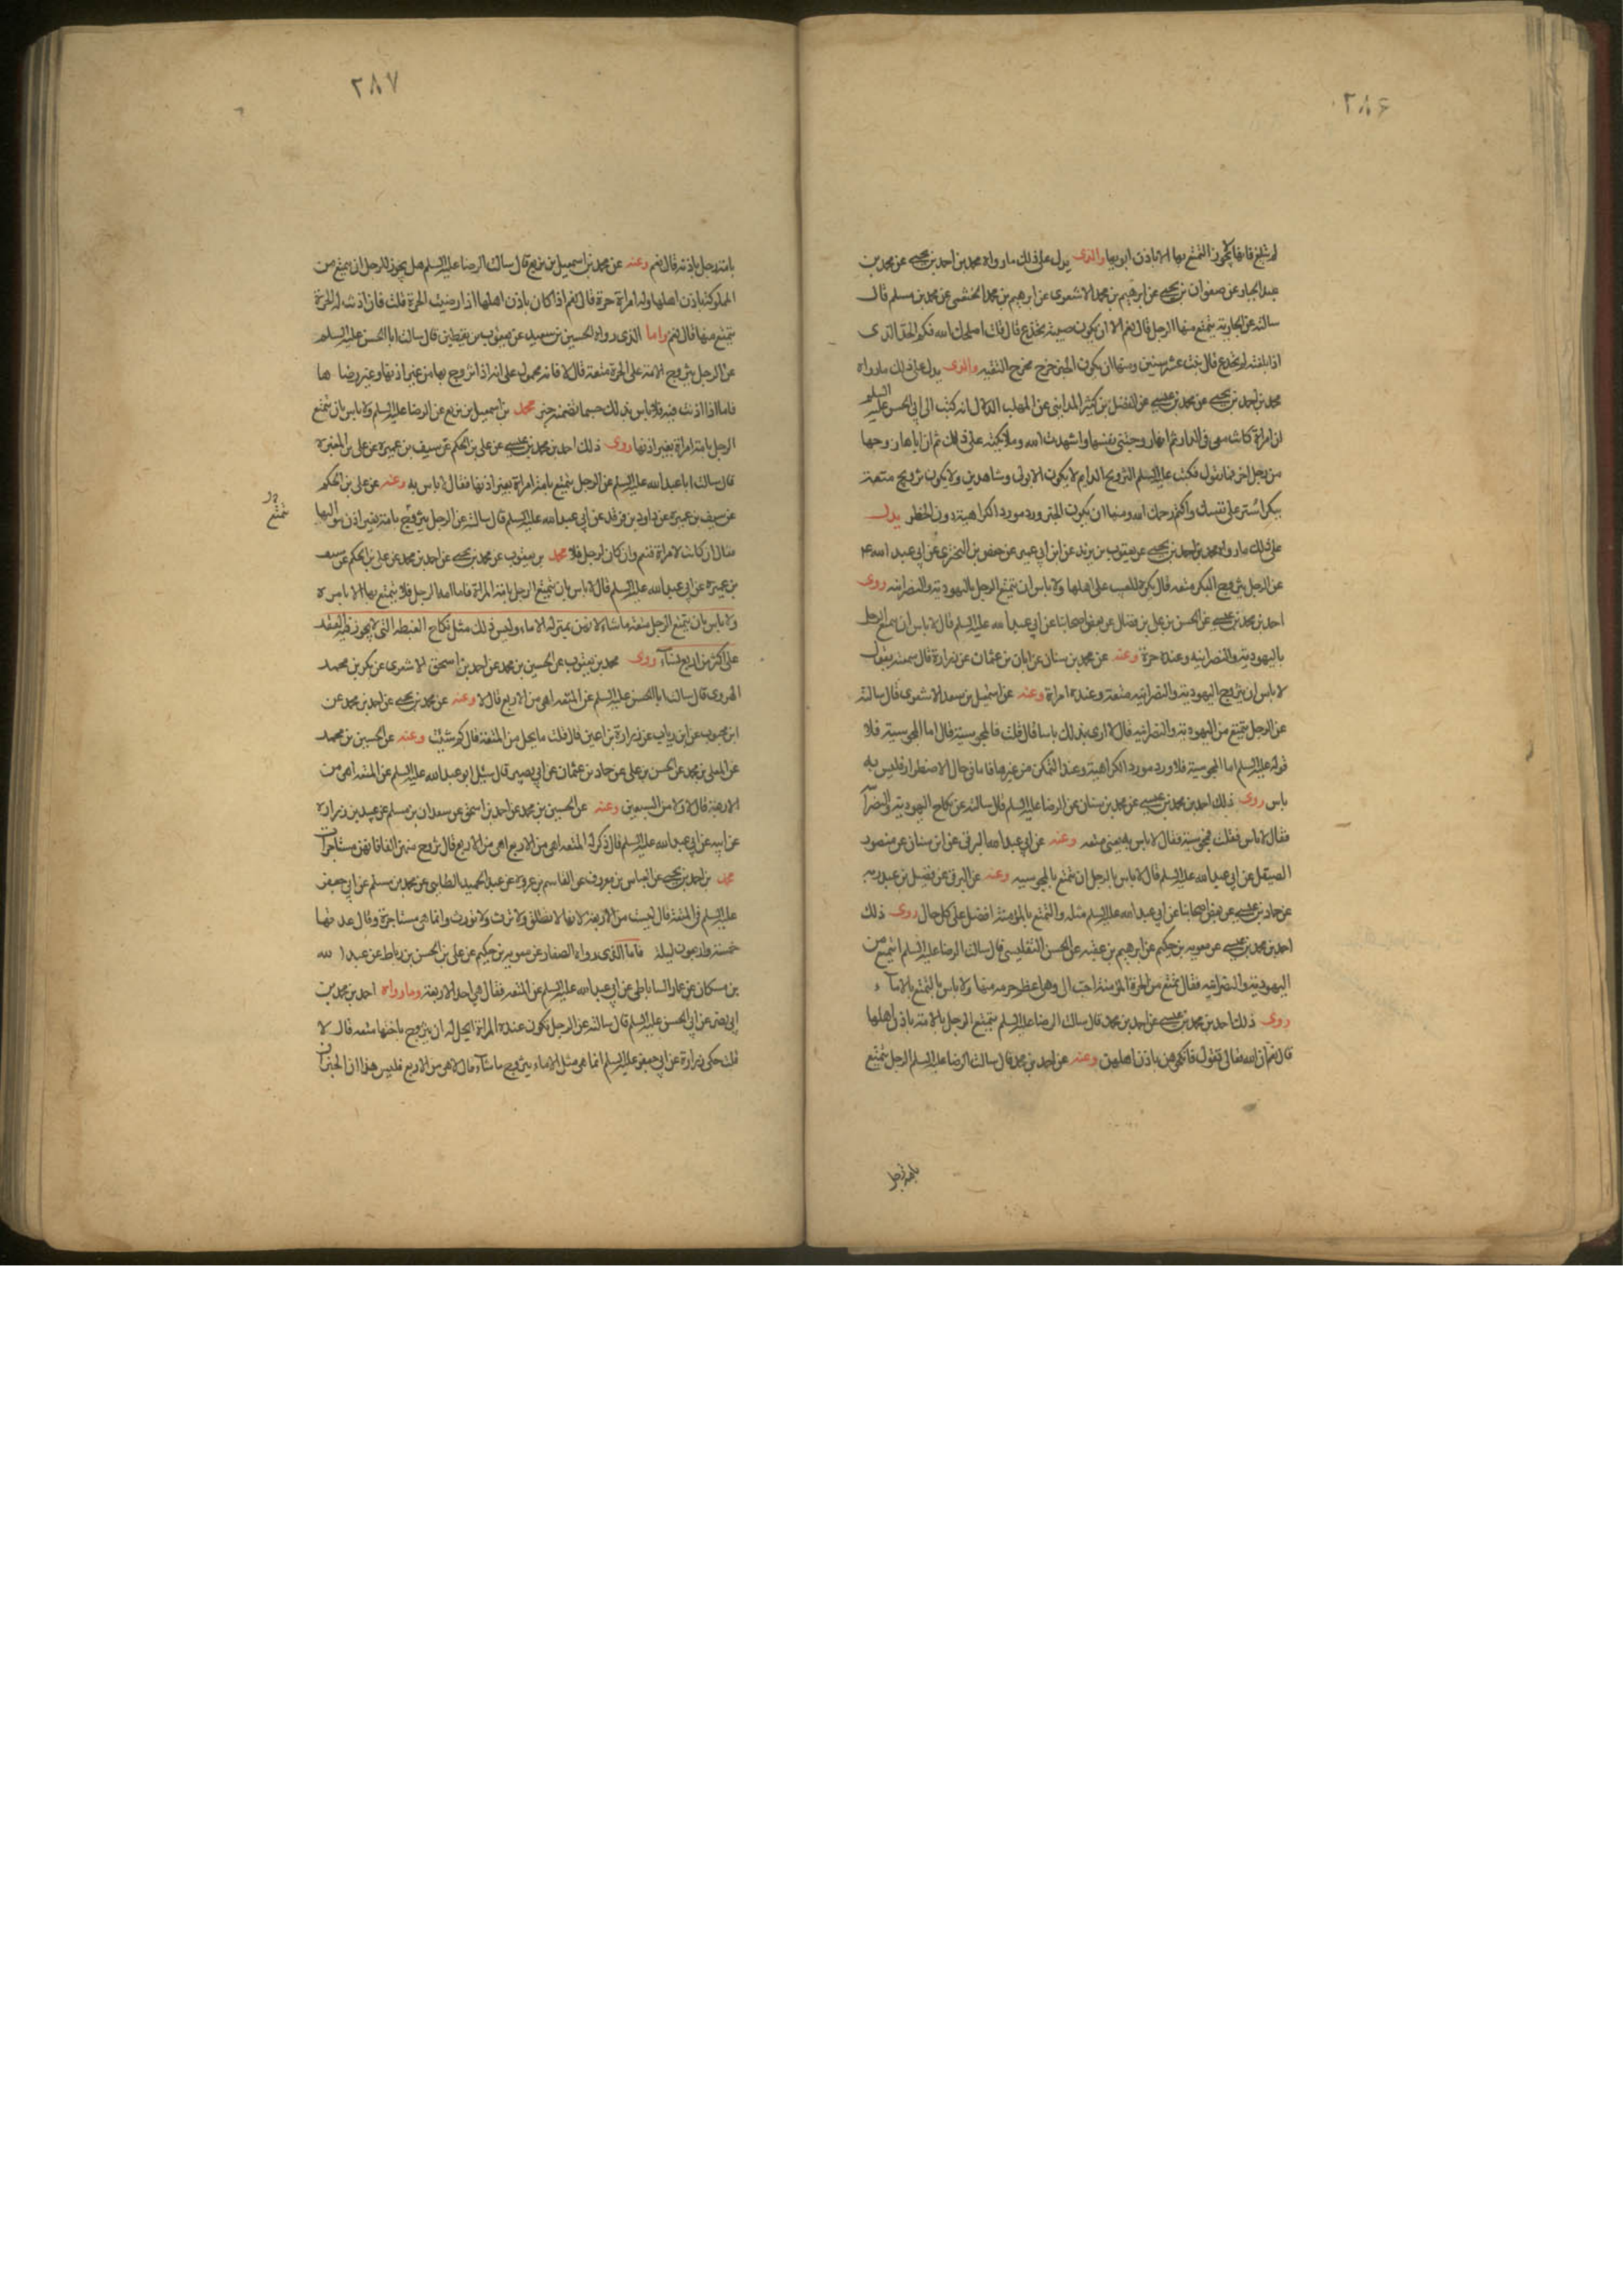 ٢٨۶
لم تبلغ فانها لا يجوز التمتع بها الا باذن ابويها والذى يدل على ذلك ما رواه محمد بن احمد بن يحيى عن محمد بن
عبد الجبار عن صفوان بن يحيى عن ابرهيم بن محمد الاشعرى عن ابرهيم بن محمد الخثعمى عن محمد بن مسلم قال
سالته عن الجارية يتمتع منها الرجل قال نعم الا ان يكون صبية تخدع قال قلت اصلحك الله فكم الحد الذى
اذا بلغته لم تخدع قال بنت عشر سنين ومنها ان يكون الخبر خرج مخرج التقية والذى يدل على ذلك ما رواه
محمد بن احمد بن يحيى عن محمد بن عيسى عن الفضل بن كثير المداينى عن المهلب الدلال انه كتب الى ابى الحسن عليه السلم
ان امراة كانت معى فى الدار ثم انها زوجتنى نفسها واشهدت الله وملائكته على ذلك ثم ان اباها زوجها
من رجل اخر فما تقول فكتب عليه السلم التزويج الدايم لا يكون الا بولى وشاهدين ولا يكون تزويج متعة
ببكر استر على نفسك واكتم رحمك الله ومنها ان يكون الخبر ورد مورد الكراهية دون الحظر يدل
على ذلك ما رواه محمد بن احمد بن يحيى عن يعقوب بن يزيد عن ابن ابى عمير عن حفص بن البخترى عن ابى عبد الله ع
عن الرجل يتزوج البكر متعة قال يكره للعيب على اهلها ولا باس ان يتمتع الرجل باليهودية والنصرانيه روى
احمد بن محمد بن عيسى عن الحسن بن على بن فضال عن بعض اصحابنا عن ابى عبد الله عليه السلم قال لا باس ان يتمتع الرجل
باليهودية والنصرانيه وعنده حرة وعنه عن محمد بن سنان عن ابان بن عثمان عن زرارة قال سمعته يقول
لا باس ان يتزوج اليهودية والنصرانيه متعة وعنده امراة وعنه عن اسمعيل بن سعد الاشعرى قال سالته
عن الرجل يتمتع من اليهودية والنصرانيه قال لا ارى بذلك باسا قال قلت فالمجوسية قال اما المجوسية فلا
قوله عليه السلم اما المجوسية فلا ورد مورد الكراهية وعند التمكن من غيرها فاما فى حال الاضطرار فليس به
باس روى ذلك احمد بن محمد بن عيسى عن محمد بن سنان عن الرضا عليه السلم قال سالته عن نكاح اليهودية والنصرانية
فقال لا باس فقلت مجوسية فقال لا باس به يعنى متعه وعنه عن ابى عبد الله البرقى عن ابن سنان عن منصور
الصيقل عن ابى عبد الله عليه السلم قال لا باس بالرجل ان يتمتع بالمجوسيه وعنه عن البرقى عن فضيل بن عبد ربه
عن حماد بن عيسى عن بعض اصحابنا عن ابى عبد الله عليه السلم مثله والتمتع بالمؤمنة افضل على كل حال روى ذلك
احمد بن محمد بن عيسى عن معويه بن حكيم عن ابرهيم بن عقبه عن الحسن التفليسى قال سالت الرضا عليه السلم ايتمتع من
اليهودية والنصرانيه فقال يتمتع من الحرة المؤمنة احب الى وهى اعظم حرمه منهما ولا باس بالتمتع بالاماء
روى ذلك احمد بن محمد بن عيسى عن احمد بن محمد قال سالت الرضا عليه السلم يتمتع الرجل بالامة باذن اهلها
قال نعم ان الله تعالى يقول فانكحوهن باذن اهلهن وعنه عن احمد بن محمد قال سالت الرضا عليه السلم الرجل يتمتع
بامة رجل
٢٨٧
بامة رجل باذنه قال نعم وعنه عن محمد بن اسمعيل بن بزيع قال سالت الرضا عليه السلم هل يجوز للرجل ان يتمتع من
المملوكة باذن اهلها وله امراة حرة قال نعم اذا كان باذن اهلها اذا رضيت الحرة قلت فان اذنت له الحرة
يتمتع منها قال نعم واما الذى رواه الحسين بن سعيد عن يعقوب بن يقطين قال سالت ابا الحسن عليه السلم
عن الرجل يتزوج الامة على الحرة متعة قال لا فانه محمول على انه اذا تزوج بها من غير اذنها وغير رضاها
فاما اذا اذنت فيه فلا باس بذلك حسبما تضمنه خبر محمد بن اسمعيل بن بزيع عن الرضا عليه السلم ولا باس ان يتمتع
الرجل بامة امراة بغير اذنها روى ذلك احمد بن محمد بن عيسى عن على بن الحكم عن سيف بن عميرة عن على بن المغيرة
قال سالت ابا عبد الله عليه السلم عن الرجل يتمتع بامة امراة بغير اذنها فقال لا باس به وعنه عن على بن الحكم
عن سيف بن عميرة عن داود بن فرقد عن ابى عبد الله عليه السلم قال سالته عن الرجل يتزوج بامة بغير اذن مواليها
يتمتع
فقال ان كانت لامراة فنعم وان كان لرجل فلا محمد بن يعقوب عن محمد بن يحيى عن احمد بن محمد عن على بن الحكم عن سيف
بن عميرة عن ابى عبد الله عليه السلم قال لا باس بان يتمتع الرجل بامة المراة فاما امة الرجل فلا يتمتع بها الا بامره
ولا باس بان يتمتع الرجل متعة ما شاء لانهن بمنزلة الاماء وليس ذلك مثل نكاح الغبطه التى لا يجوز فيه العقد
على اكثر من اربع نساء روى محمد بن يعقوب عن الحسين بن محمد عن احمد بن اسحق الاشعرى عن بكر بن محمد
الهروى قال سالت ابا الحسن عليه السلم عن المتعه اهى من الاربع قال لا وعنه عن محمد بن يحيى عن احمد بن محمد عن
ابن محبوب عن ابن رياب عن زرارة بن اعين قال قلت ما يحل من المتعة قال كم شئت وعنه عن الحسين بن محمد
عن المعلى بن محمد عن الحسن بن على عن حماد بن عثمان عن ابى بصير قال سئل ابو عبد الله عليه السلم عن المتعه اهى من
الاربعة قال لا ولا من السبعين وعنه عن الحسين بن محمد عن احمد بن اسحق عن سعدان بن مسلم عن عبيد بن زرارة
عن ابيه عن ابى عبد الله عليه السلم قال ذكر له المتعه اهى من الاربع قال تزوج منهن الفا فانهن مستاجرات
محمد بن احمد بن يحيى عن العباس بن معروف عن القاسم بن عروة عن عبد الحميد الطائى عن محمد بن مسلم عن ابى جعفر
عليه السلم فى المتعة قال ليست من الاربعة لانها لا تطلق ولا ترث ولا تورث وانما هى مستاجرة وقال عدتها
خمسة واربعون ليلة فاما الذى رواه الصفار عن معويه بن حكيم عن على بن الحسن بن رباط عن عبد الله
بن مسكان عن عمار الساباطى عن ابى عبد الله عليه السلم عن المتعه فقال هى احد الاربعة وما رواه احمد بن محمد بن
ابى نصر عن ابى الحسن عليه السلم قال سالته عن الرجل تكون عنده المراة ايحل له ان يتزوج باختها متعه قال لا
قلت حكى زرارة عن ابى جعفر عليه السلم انما هى مثل الاماء يتزوج ما شاء قال لا هى من الاربع فليس هذان الخبران